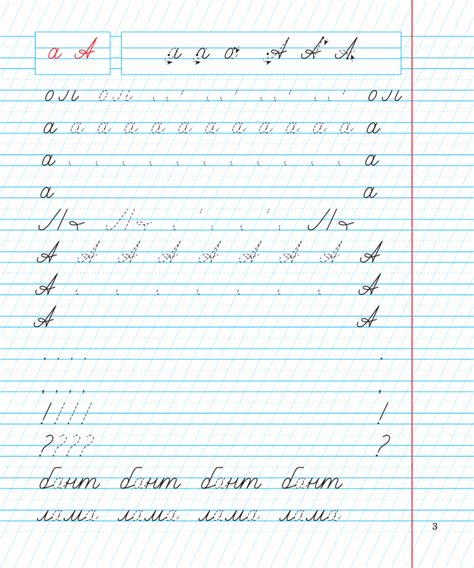 а А а г о А А А
ол ол ол
а а а а а а а а а а а а а
а а
а
Л Л Л
А А А А А А А А А
А А
А А
. . . . .
, , , , ,
! ! ! ! ! !
? ? ? ? ?
бант бант бант бант
лама лама лама лама
3